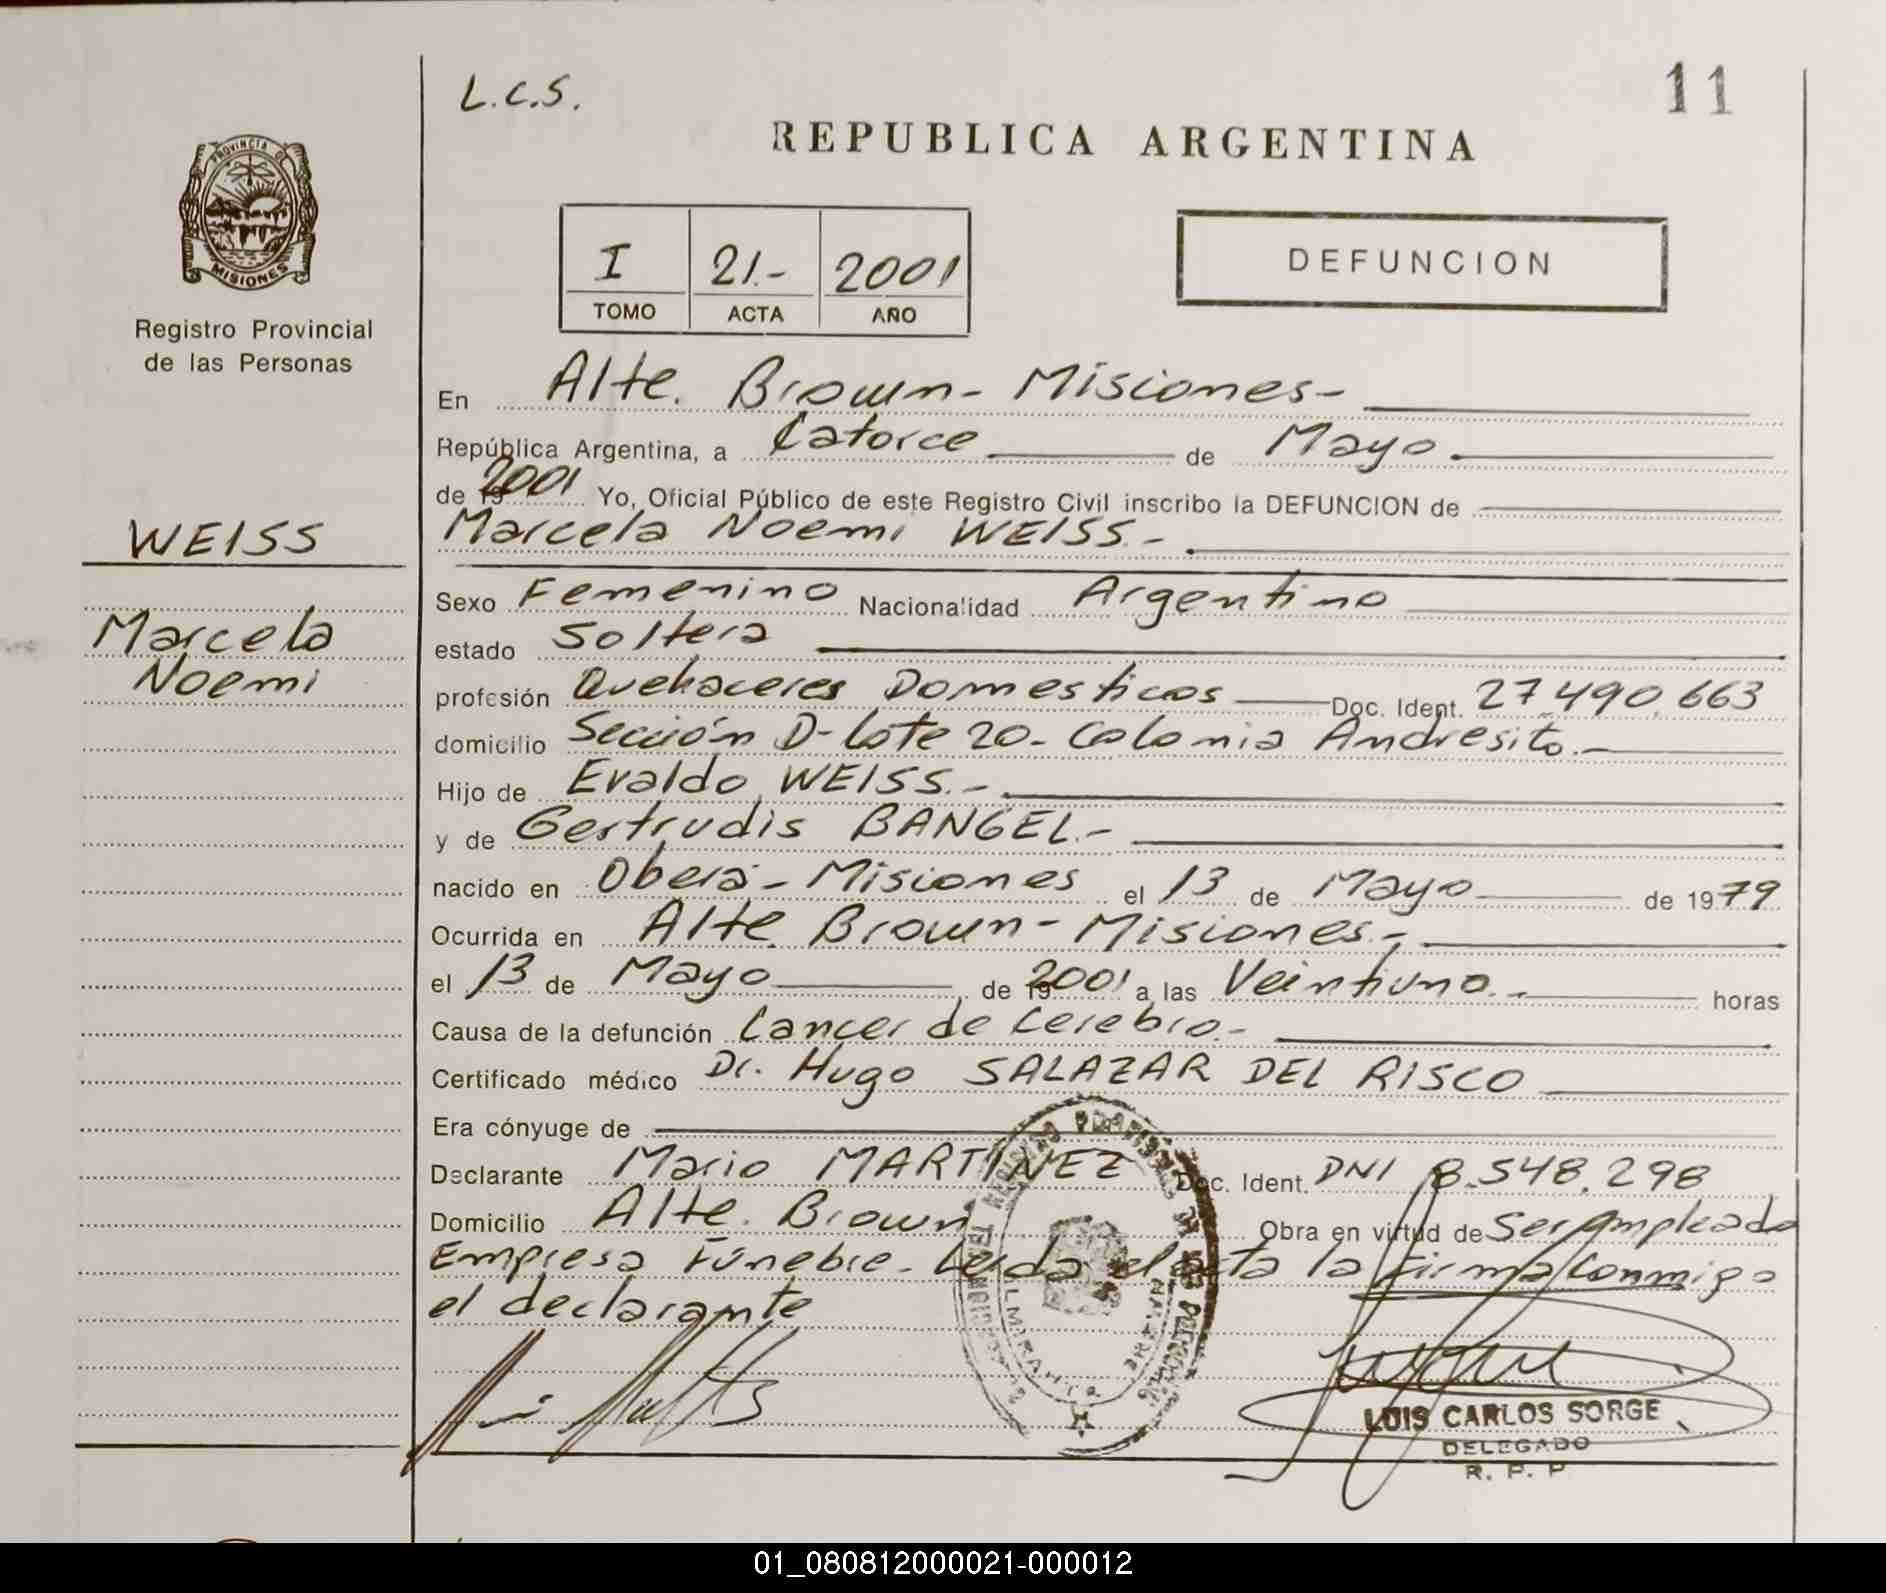 L.C.S.
11
REPUBLICA ARGENTINA
PROVINCIA DE
MISIONES
Registro Provincial
de las Personas
I 21.- 2001
TOMO ACTA AÑO
DEFUNCION
En Alte. Brown - Misiones -
República Argentina, a Catorce de Mayo.
de 2001 Yo, Oficial Público de este Registro Civil inscribo la DEFUNCION de
WEISS
Marcela
Noemi
Marcela Noemi WEISS.-
Sexo Femenino Nacionalidad Argentino
estado Soltera
profesión Quehaceres Domesticos Doc. Ident. 27.490.663
domicilio Sección D- Lote 20- Colonia Andresito.-
Hijo de Evaldo WEISS.-
y de Gertrudis BANGEL.-
nacido en Oberá - Misiones el 13 de Mayo de 1979
Ocurrida en Alte. Brown - Misiones.-
el 13 de Mayo de 2001 a las Veintiuno.- horas
Causa de la defunción Cancer de Cerebro.-
Certificado médico Dr. Hugo SALAZAR DEL RISCO
Era cónyuge de
Declarante Mario MARTINEZ Doc. Ident. DNI 8.548.298
Domicilio Alte. Brown Obra en virtud de Ser Empleado
Empresa Fúnebre - Leida el acta la firma conmigo
el declarante
LUIS CARLOS SORGE
DELEGADO
R. P. P
01_080812000021-000012